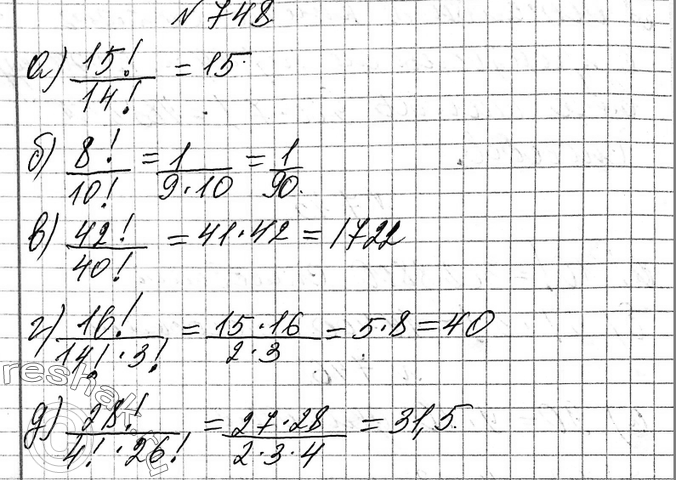 № 748
а) 15!/14! = 15.
б) 8!/10! = 1/(9·10) = 1/90.
в) 42!/40! = 41·42 = 1722
г) 16!/(14!·3!) = (15·16)/(2·3) = 5·8 = 40
д) 28!/(4!·26!) = (27·28)/(2·3·4) = 31,5.
reshak